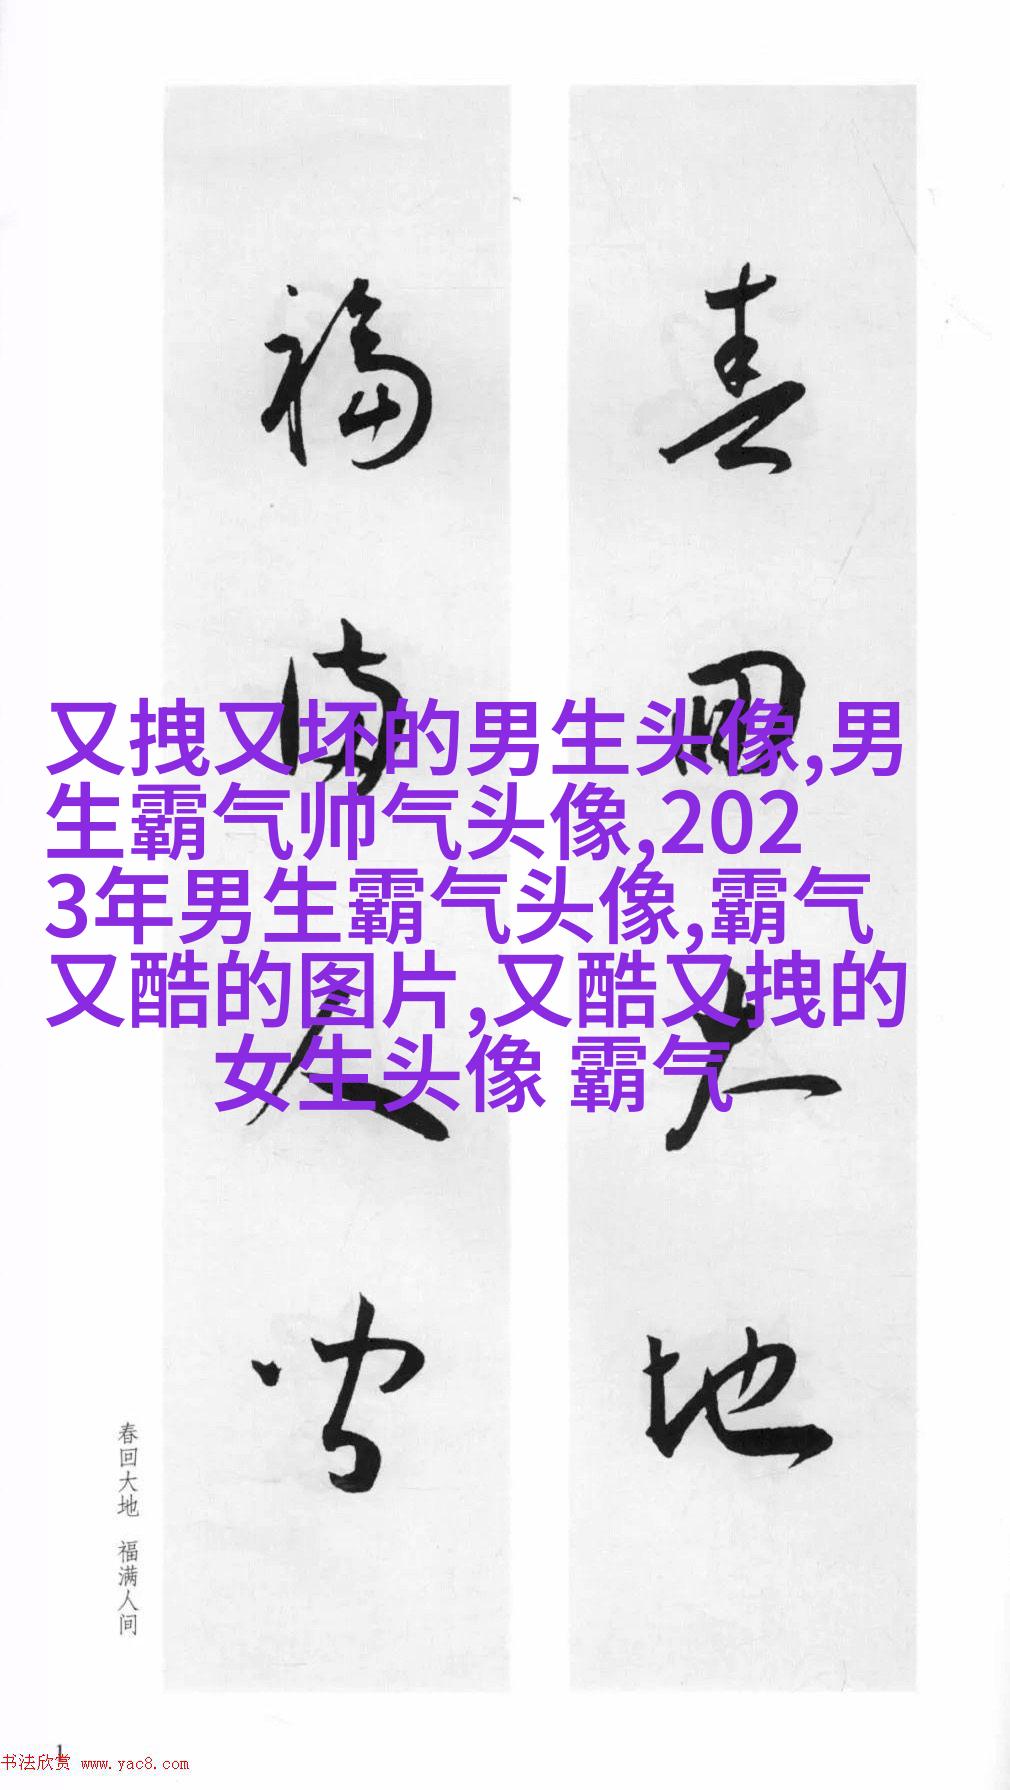 春回大地
福满人间
又拽又坏的男生头像,男
生霸气帅气头像,202
3年男生霸气头像,霸气
又酷的图片,又酷又拽的
女生头像 霸气
春回大地 福满人间
1
书法欣赏 www.yac8.com